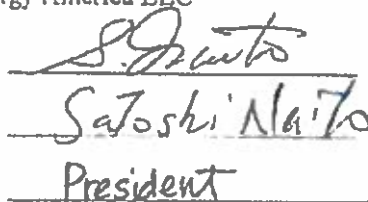 rgy America LLC
S. Naito
Satoshi Naito
President